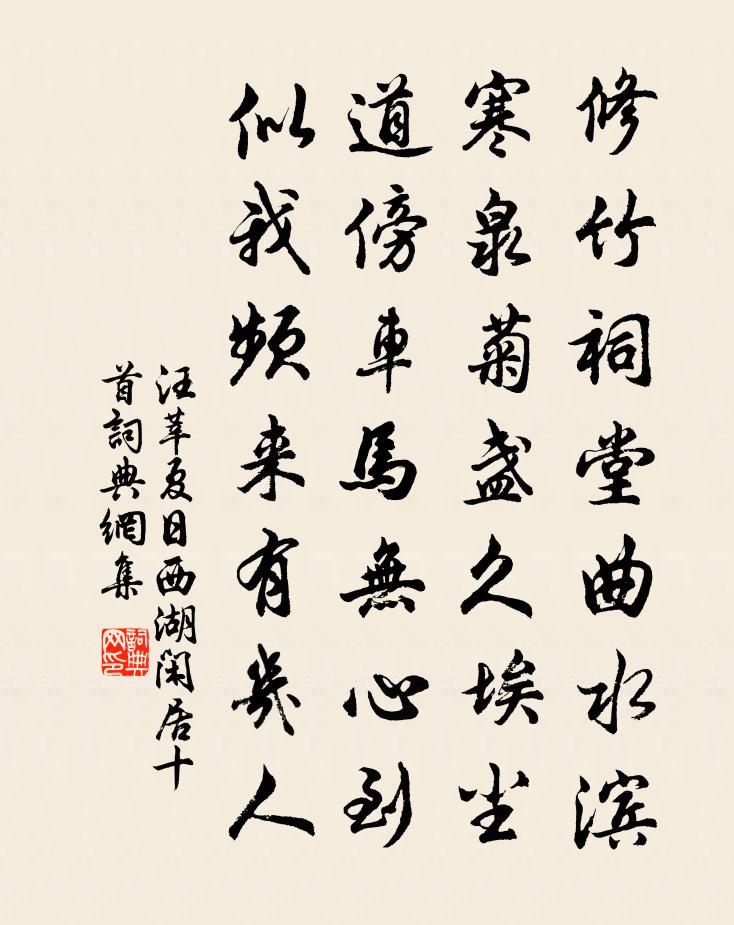 修竹祠堂曲水滨
寒泉菊盏久埃尘
道傍車馬無心到
似我频来有幾人
汪莘夏日西湖閑居十
首詞典網集
詞典网印